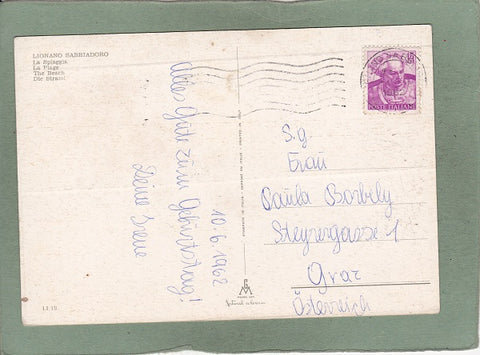 LIGNANO SABBIADORO
La Spiaggia
La Plage
The Beach
Die Strand
10.6.1962
Alles Gute zum Geburtstag!
Deine Irene
POSTE ITALIANE
S.g.
Frau
Paula Borbely
Steyrergasse 1
Graz
Österreich